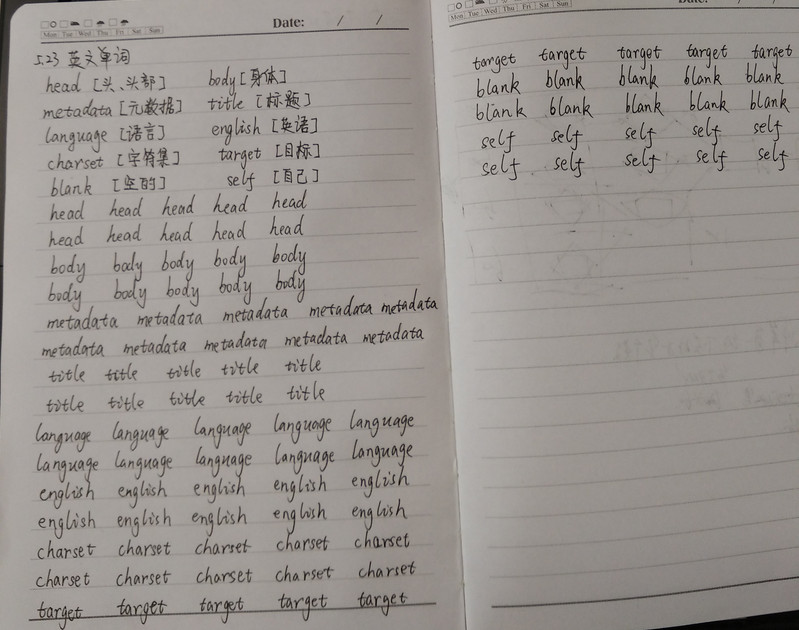 Date: / /
Mon Tue Wed Thu Fri Sat Sun
5.23 英文单词
head [头、头部] body [身体]
metadata [元数据] title [标题]
language [语言] english [英语]
charset [字符集] target [目标]
blank [空的] self [自己]
head head head head head
head head head head head
body body body body body
body body body body body
metadata metadata metadata metadata metadata
metadata metadata metadata metadata metadata
title title title title title
title title title title title
language language language language language
language language language language language
english english english english english
english english english english english
charset charset charset charset charset
charset charset charset charset charset
target target target target target
Mon Tue Wed Thu Fri Sat Sun
Date: / /
target target target target target
blank blank blank blank blank
blank blank blank blank blank
self self self self self
self self self self self